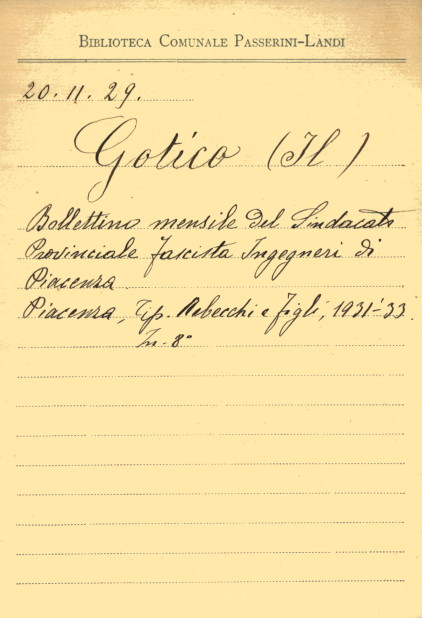 BIBLIOTECA COMUNALE PASSERINI-LANDI
20.11.29.
Gotico (Il)
Bollettino mensile del Sindacato
Provinciale fascista Ingegneri di
Piacenza
Piacenza, Tip. Rebecchi e figli, 1931-33.
In-8°